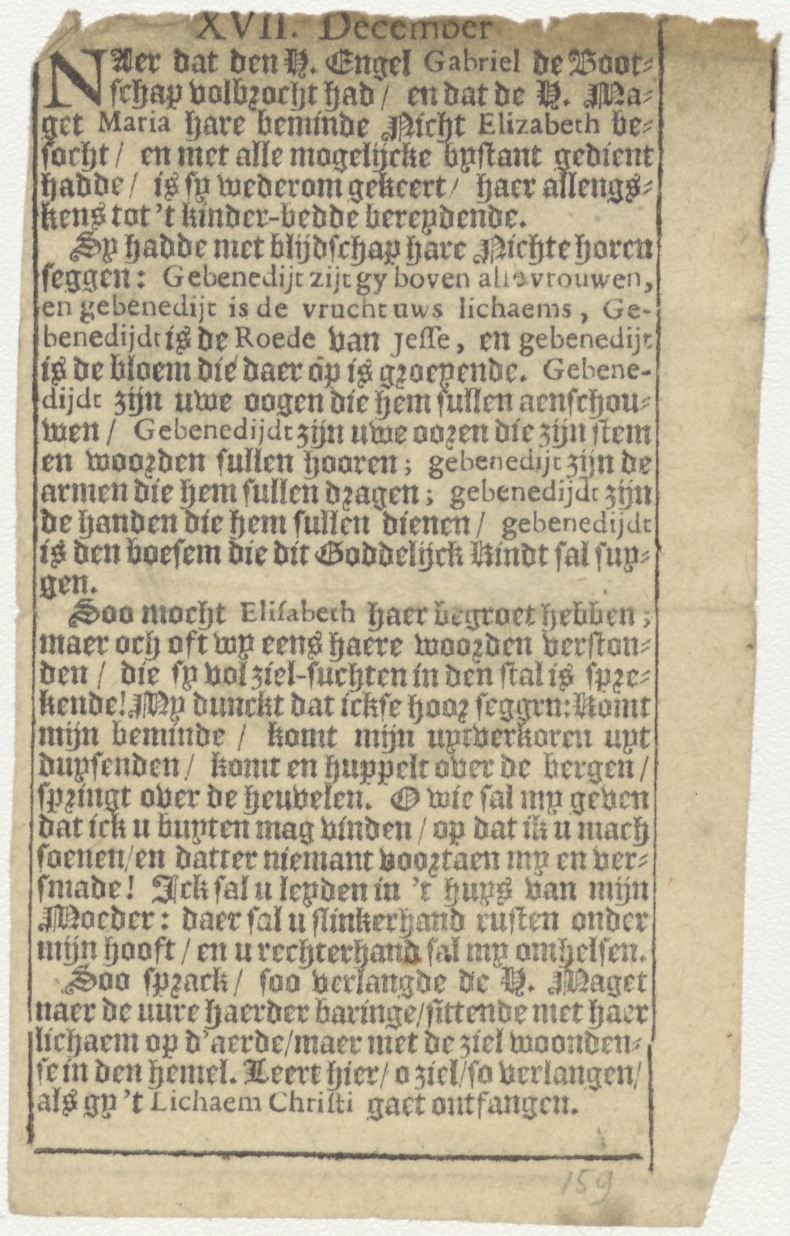 XVII. December
NAer dat den H. Engel Gabriel de Boot-
schap volbrocht had / en dat de H. Ma-
get Maria hare beminde Nicht Elizabeth be-
socht / en met alle mogelijcke bystant gedient
hadde / is sy wederom gekeert / haer allengs-
kens tot 't kinder-bedde bereydende.
Sy hadde met blijdschap hare Nichte horen
seggen: Gebenedijt zijt gy boven alle vrouwen,
en gebenedijt is de vrucht uws lichaems, Ge-
benedijdt is de Roede van Jesse, en gebenedijt
is de bloem die daer op is groeyende. Gebene-
dijdt zijn uwe oogen die hem sullen aenschou-
wen / Gebenedijdt zijn uwe ooren die zijn stem
en woorden sullen hooren; gebenedijt zijn de
armen die hem sullen dragen; gebenedijdt zijn
de handen die hem sullen dienen / gebenedijdt
is den boesem die dit Goddelijck Kindt sal suy-
gen.
Soo mocht Elisabeth haer begroet hebben;
maer och oft wy eens haere woorden verston-
den / die sy vol ziel-suchten in den stal is spre-
kende! My dunckt dat ickse hoor seggen: Komt
mijn beminde / komt mijn uytverkoren uyt
duysenden / komt en huppelt over de bergen /
springt over de heuvelen. O wie sal my geven
dat ick u buyten mag vinden / op dat ik u mach
soenen / en datter niemant voortaen my en ver-
smade! Ick sal u leyden in 't huys van mijn
Moeder: daer sal u slinkerhand rusten onder
mijn hooft / en u rechterhand sal my omhelsen.
Soo sprack / soo verlangde de H. Maget
naer de uure haerder baringe / sittende met haer
lichaem op d'aerde / maer met de ziel woonden-
se in den hemel. Leert hier / o ziel / so verlangen /
als gy 't Lichaem Christi gaet ontfangen.
159